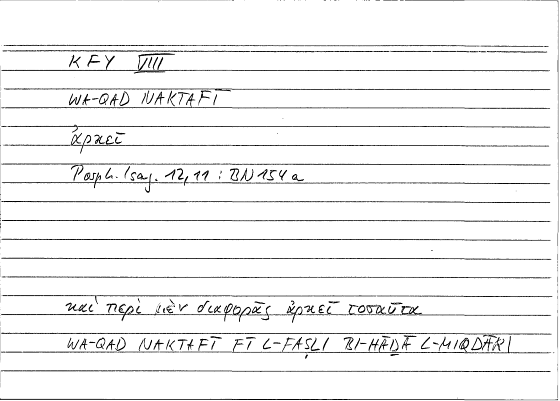 KFY VIII
WA-QAD NAKTAFĪ
ἀρκεῖ
Porph. Isag. 12,11 : BN 154 a
καὶ περὶ μὲν διαφορᾶς ἀρκεῖ τοσαῦτα
WA-QAD NAKTAFĪ FĪ L-FAṢLI BI-HĀḎĀ L-MIQDĀRI